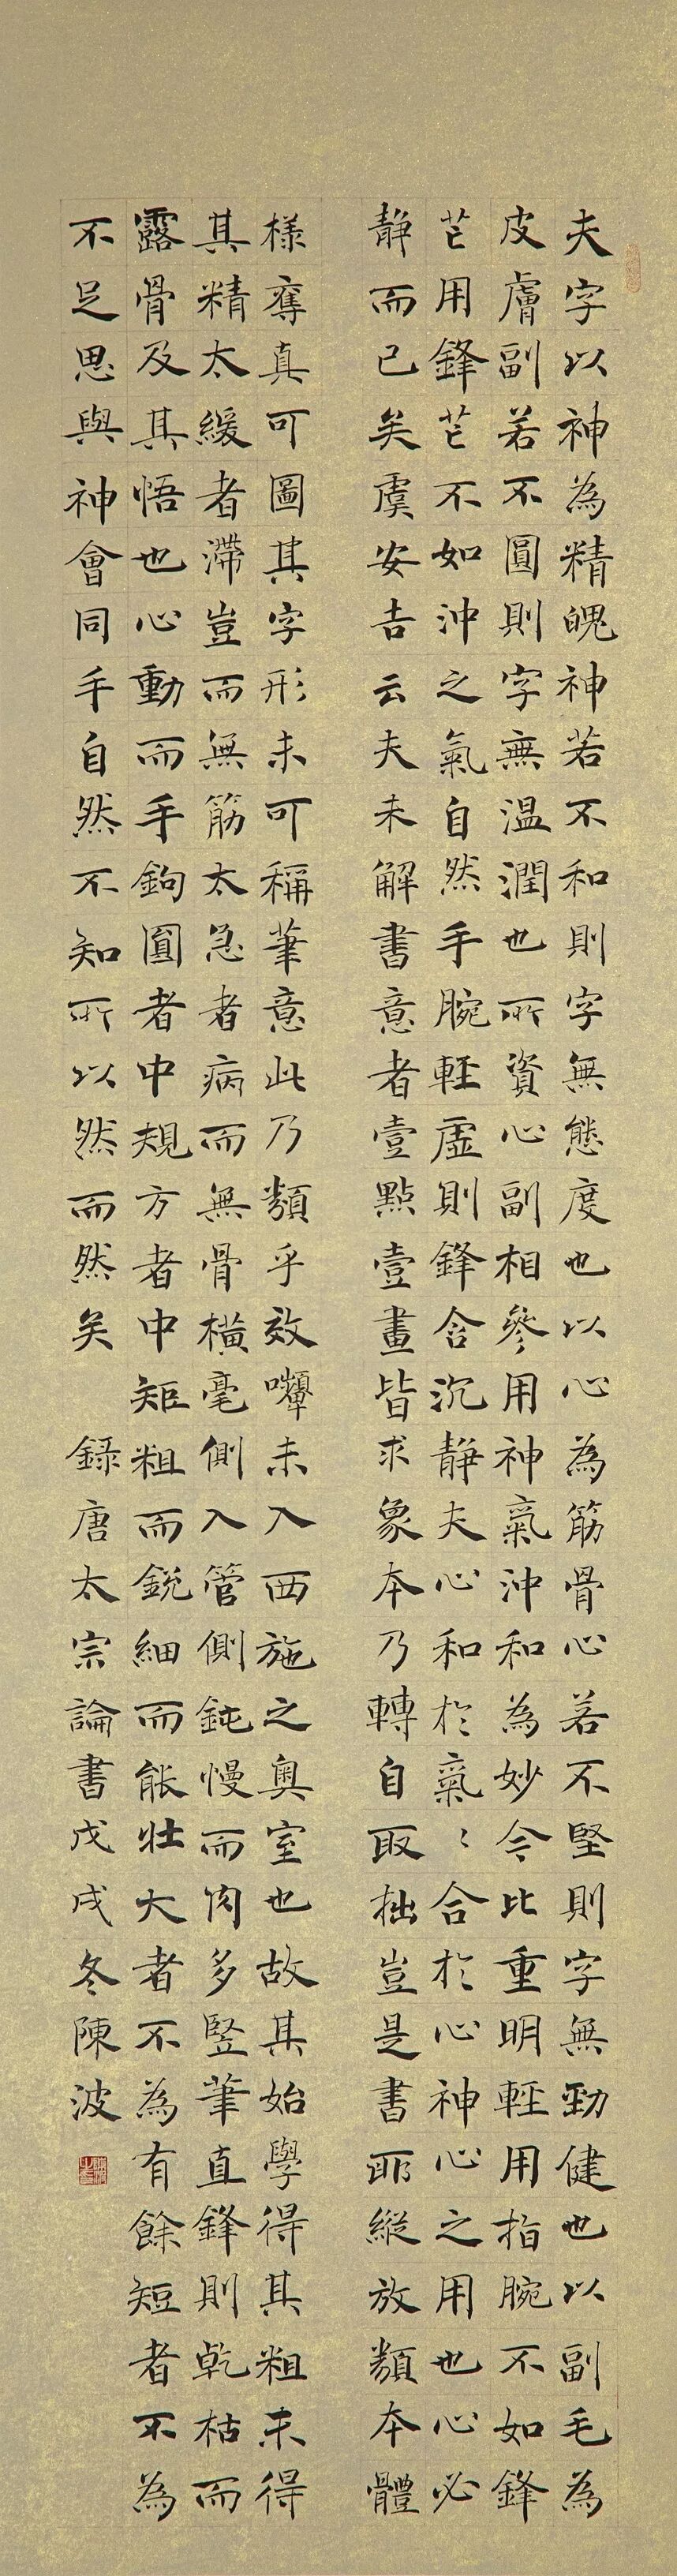 夫字以神為精魄神若不和則字無態度也以心為筋骨心若不堅則字無勁健也以副毛為
皮膚副若不圓則字無溫潤也所資心副相參用神氣沖和為妙今比重明輕用指腕不如鋒
芒用鋒芒不如沖之氣自然手腕輕虛則鋒含沉靜夫心和於氣〻合於心神心之用也心必
靜而已矣虞安吉云夫未解書意者壹點壹畫皆求象本乃轉自取拙豈是書耶縱放類本體
樣奪真可圖其字形未可稱筆意此乃類乎效嚬未入西施之奧室也故其始學得其粗未得
其精太緩者滯豈而無筋太急者病而無骨橫毫側入管側鈍慢而肉多竪筆直鋒則乾枯而
露骨及其悟也心動而手鉤圓者中規方者中矩粗而銳細而能壯大者不為有餘短者不為
不足思與神會同乎自然不知所以然而然矣 錄唐太宗論書戊戌冬陳波